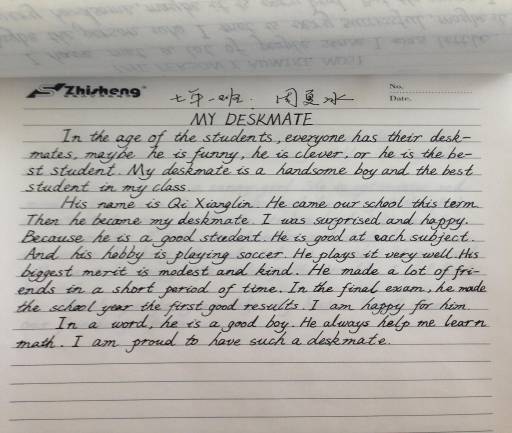 I have met a lot of people since I was little.
Zhisheng
No.
Date.
七年一班: 周夏冰
MY DESKMATE
In the age of the students, everyone has their desk-
mates, maybe he is funny, he is clever, or he is the be-
st student. My deskmate is a handsome boy and the best
student in my class.
His name is Qi Xianglin. He came our school this term.
Then he became my deskmate. I was surprised and happy.
Because he is a good student. He is good at each subject.
And his hobby is playing soccer. He plays it very well. His
biggest merit is modest and kind. He made a lot of fri-
ends in a short period of time. In the final exam, he made
the school year the first good results. I am happy for him.
In a word, he is a good boy. He always help me learn
math. I am proud to have such a deskmate.